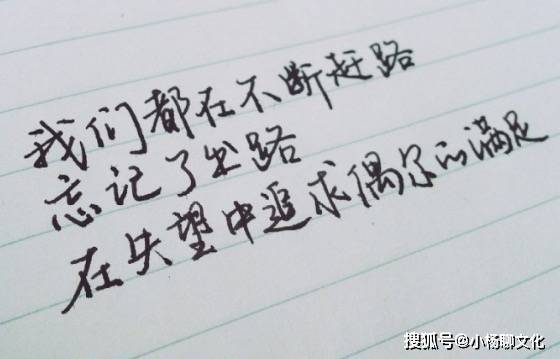 我们都在不断赶路
忘记了出路
在失望中追求偶尔的满足
搜狐号@小杨聊文化